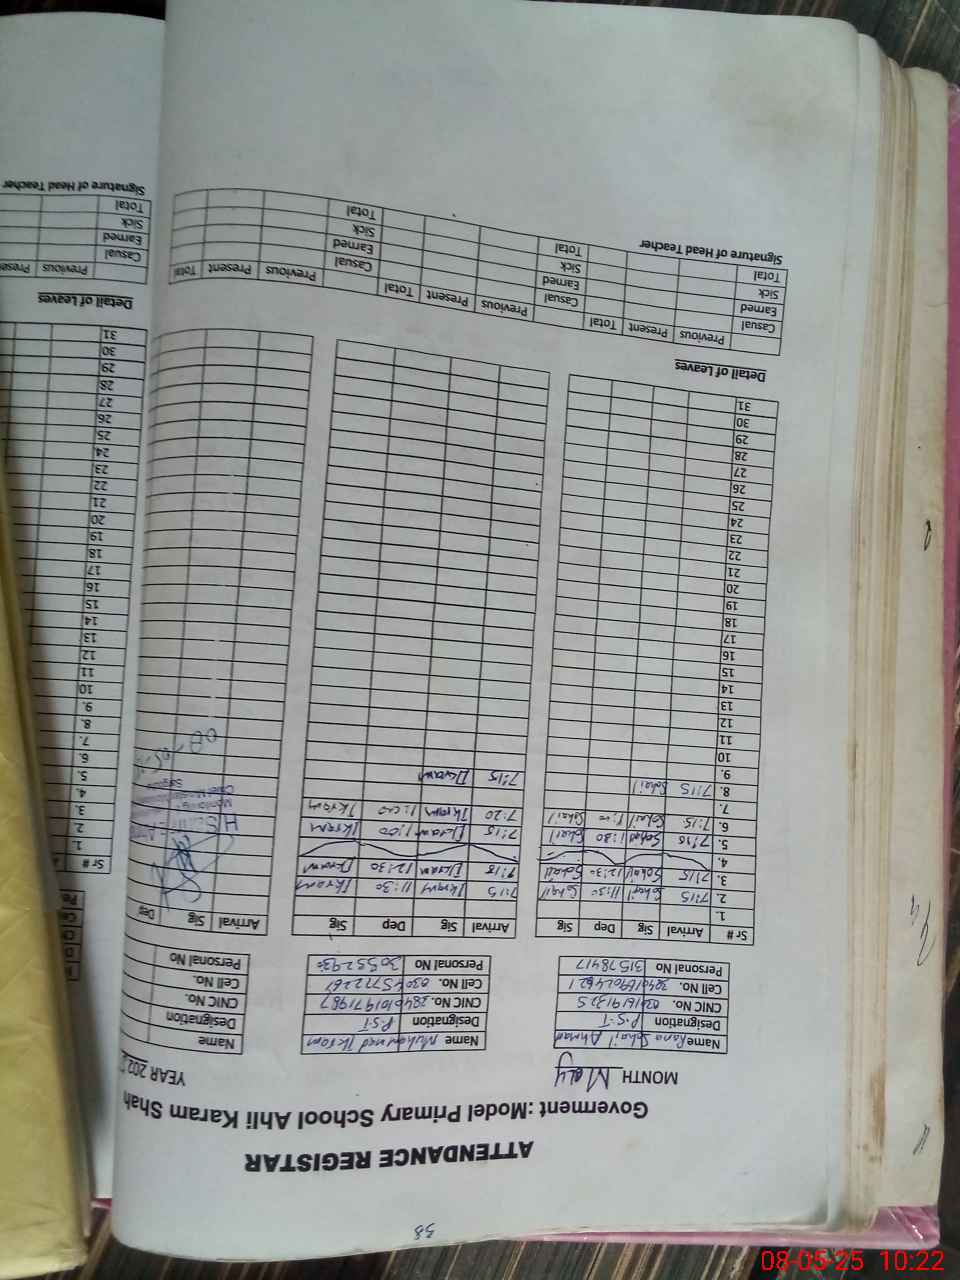 38
ATTENDANCE REGISTAR
Goverment : Model Primary School Ahli Karam Shah
MONTH May YEAR 202
Name Rana Sohail Ahmad
Designation P.S.T
CNIC No.
Cell No.
Personal No 31578417
Name Muhammed Ikram
Designation P.S.T
CNIC No. 3840101971987
Cell No.
Personal No
Name
Designation
CNIC No.
Cell No.
Personal No
Sr # Arrival Sig Dep Sig
Arrival Sig Dep Sig
Arrival Sig Dep
1.
2. 7:15 Sohail 11:30 Sohail 7:15 Ikram 11:30 Ikram
3. 7:15 Sohail 12:30 Sohail 7:15 Ikram 12:30 Ikram
4.
5. 7:15 Sohail 1:00 Sohail 7:15 Ikram 1:00 Ikram
6. 7:15 Sohail 1:00 Sohail 7:20 Ikram 1:00 Ikram
7.
8. 7:15 Sohail 7:15 Ikram
9.
10
11
12
13
14
15
16
17
18
19
20
21
22
23
24
25
26
27
28
29
30
31
Detail of Leaves
Previous Present Total Previous Present Total Previous Present Total
Casual Casual Casual
Earned Earned Earned
Sick Sick Sick
Total Total Total
Signature of Head Teacher
Sr #
1.
2.
3.
4.
5.
6.
7.
8.
9.
10
11
12
13
14
15
16
17
18
19
20
21
22
23
24
25
26
27
28
29
30
31
Detail of Leaves
Previous
Casual
Earned
Sick
Total
Signature of Head Teacher
08-05-25 10:22